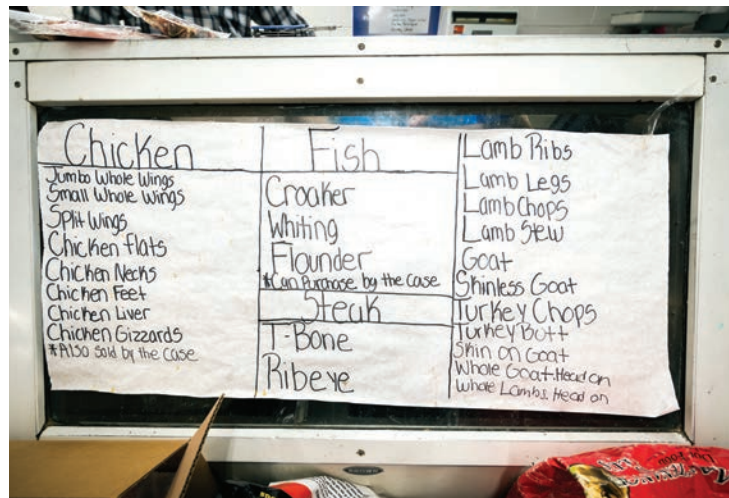 Chicken
Jumbo Whole Wings
Small Whole Wings
Split Wings
Chicken flats
Chicken Necks
Chicken Feet
Chicken Liver
Chicken Gizzards
*Also Sold by the Case
Fish
Croaker
Whiting
Flounder
*Can Purchase by the Case
Steak
T-Bone
Ribeye
Lamb Ribs
Lamb Legs
Lamb Chops
Lamb Stew
Goat
Skinless Goat
Turkey Chops
Turkey Butt
Skin on Goat
Whole Goat.Head on
Whole Lambs Head on